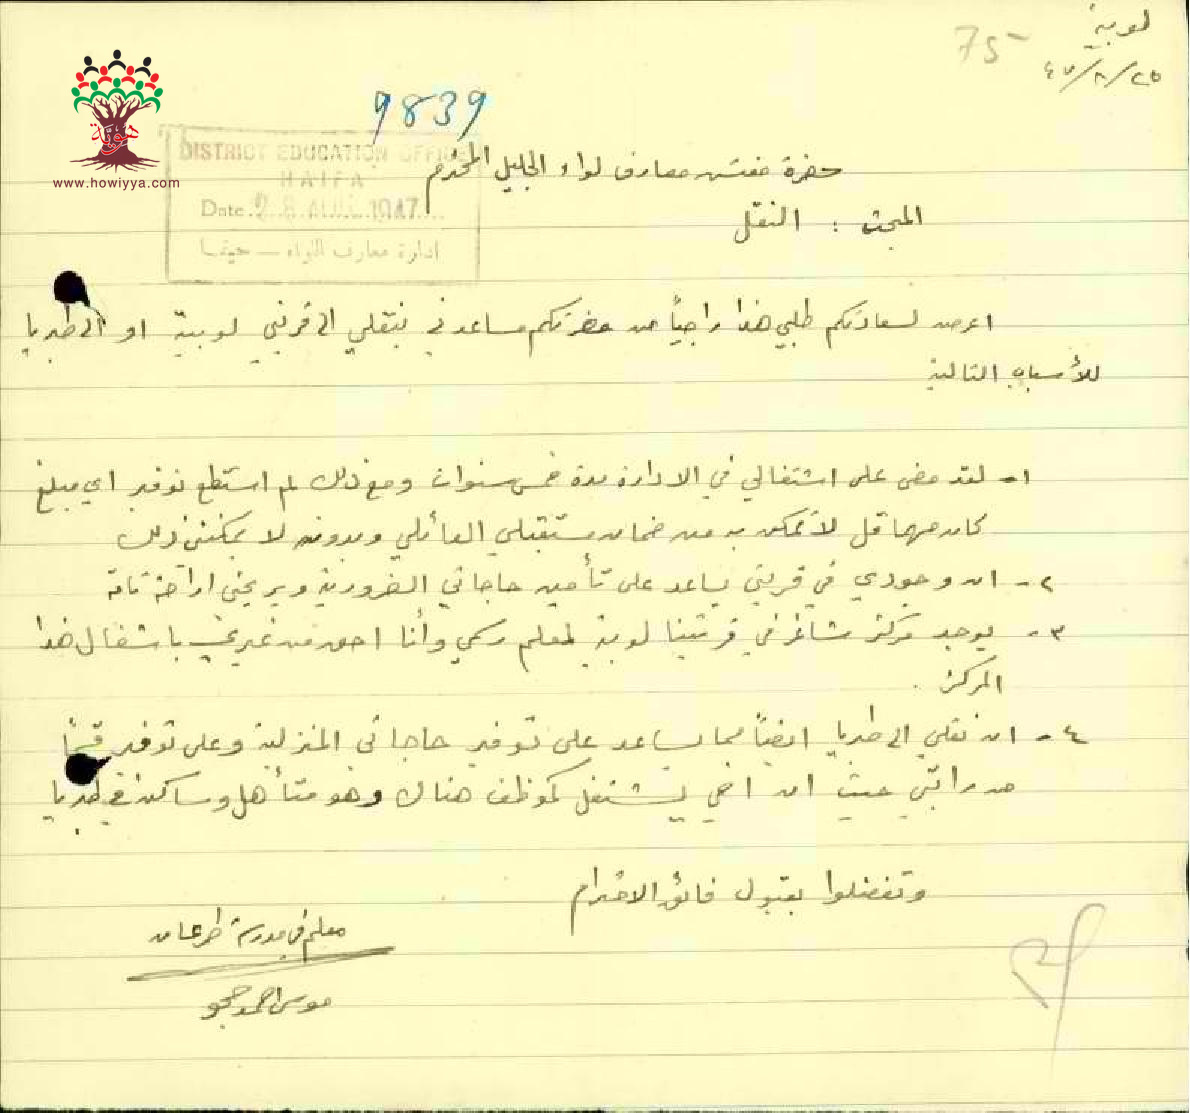 لوبية
75
٢٥/٨/٤٧
9839
هوية
www.howiyya.com
DISTRICT EDUCATION OFFICE
HAIFA
Date 28 AUG 1947
ادارة معارف اللواء — حيفا
حضرة مفتش معارف لواء الجليل المحترم
المبحث : النقل
اعرض لسعادتكم طلبي هذا راجياً من حضرتكم مساعدتي بنقلي الى قريتي لوبية او الى طبريا
للأسباب التالية
١- لقد مضى على اشتغالي في الادارة مدة خمس سنوات ومع ذلك لم استطع توفير اي مبلغ
كان مهما قل لأتمكن به من ضمان مستقبلي العائلي وبدونه لا يمكنني ذلك
٢- ان وجودي في قريتي يساعد على تأمين حاجاتي الضرورية ويريحني راحة تامة
٣- يوجد مركز شاغر في قريتنا لوبية لمعلم رسمي وأنا احق من غيري باشغال هذا
المركز .
٤- ان نقلي الى طبريا ايضاً مما يساعد على توفير حاجاتي المنزلية وعلى توفير قسماً
من راتبي حيث ان اخي يشتغل كموظف هناك وهو متأهل وساكن في طبريا
وتفضلوا بقبول فائق الاحترام
معلم في مدرسة طرعان
موسى احمد حجو